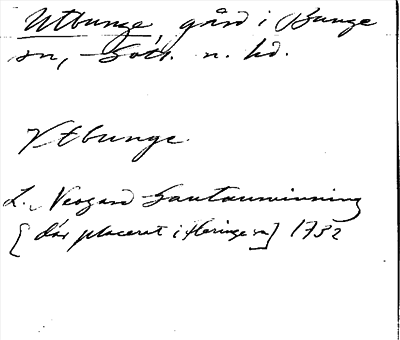 Utbunge gård i Bunge
sn, Gotl. n. hd.
Vtbunge.
L. Neogard Gautauminning
[där placerat i Fleringe sn] 1732